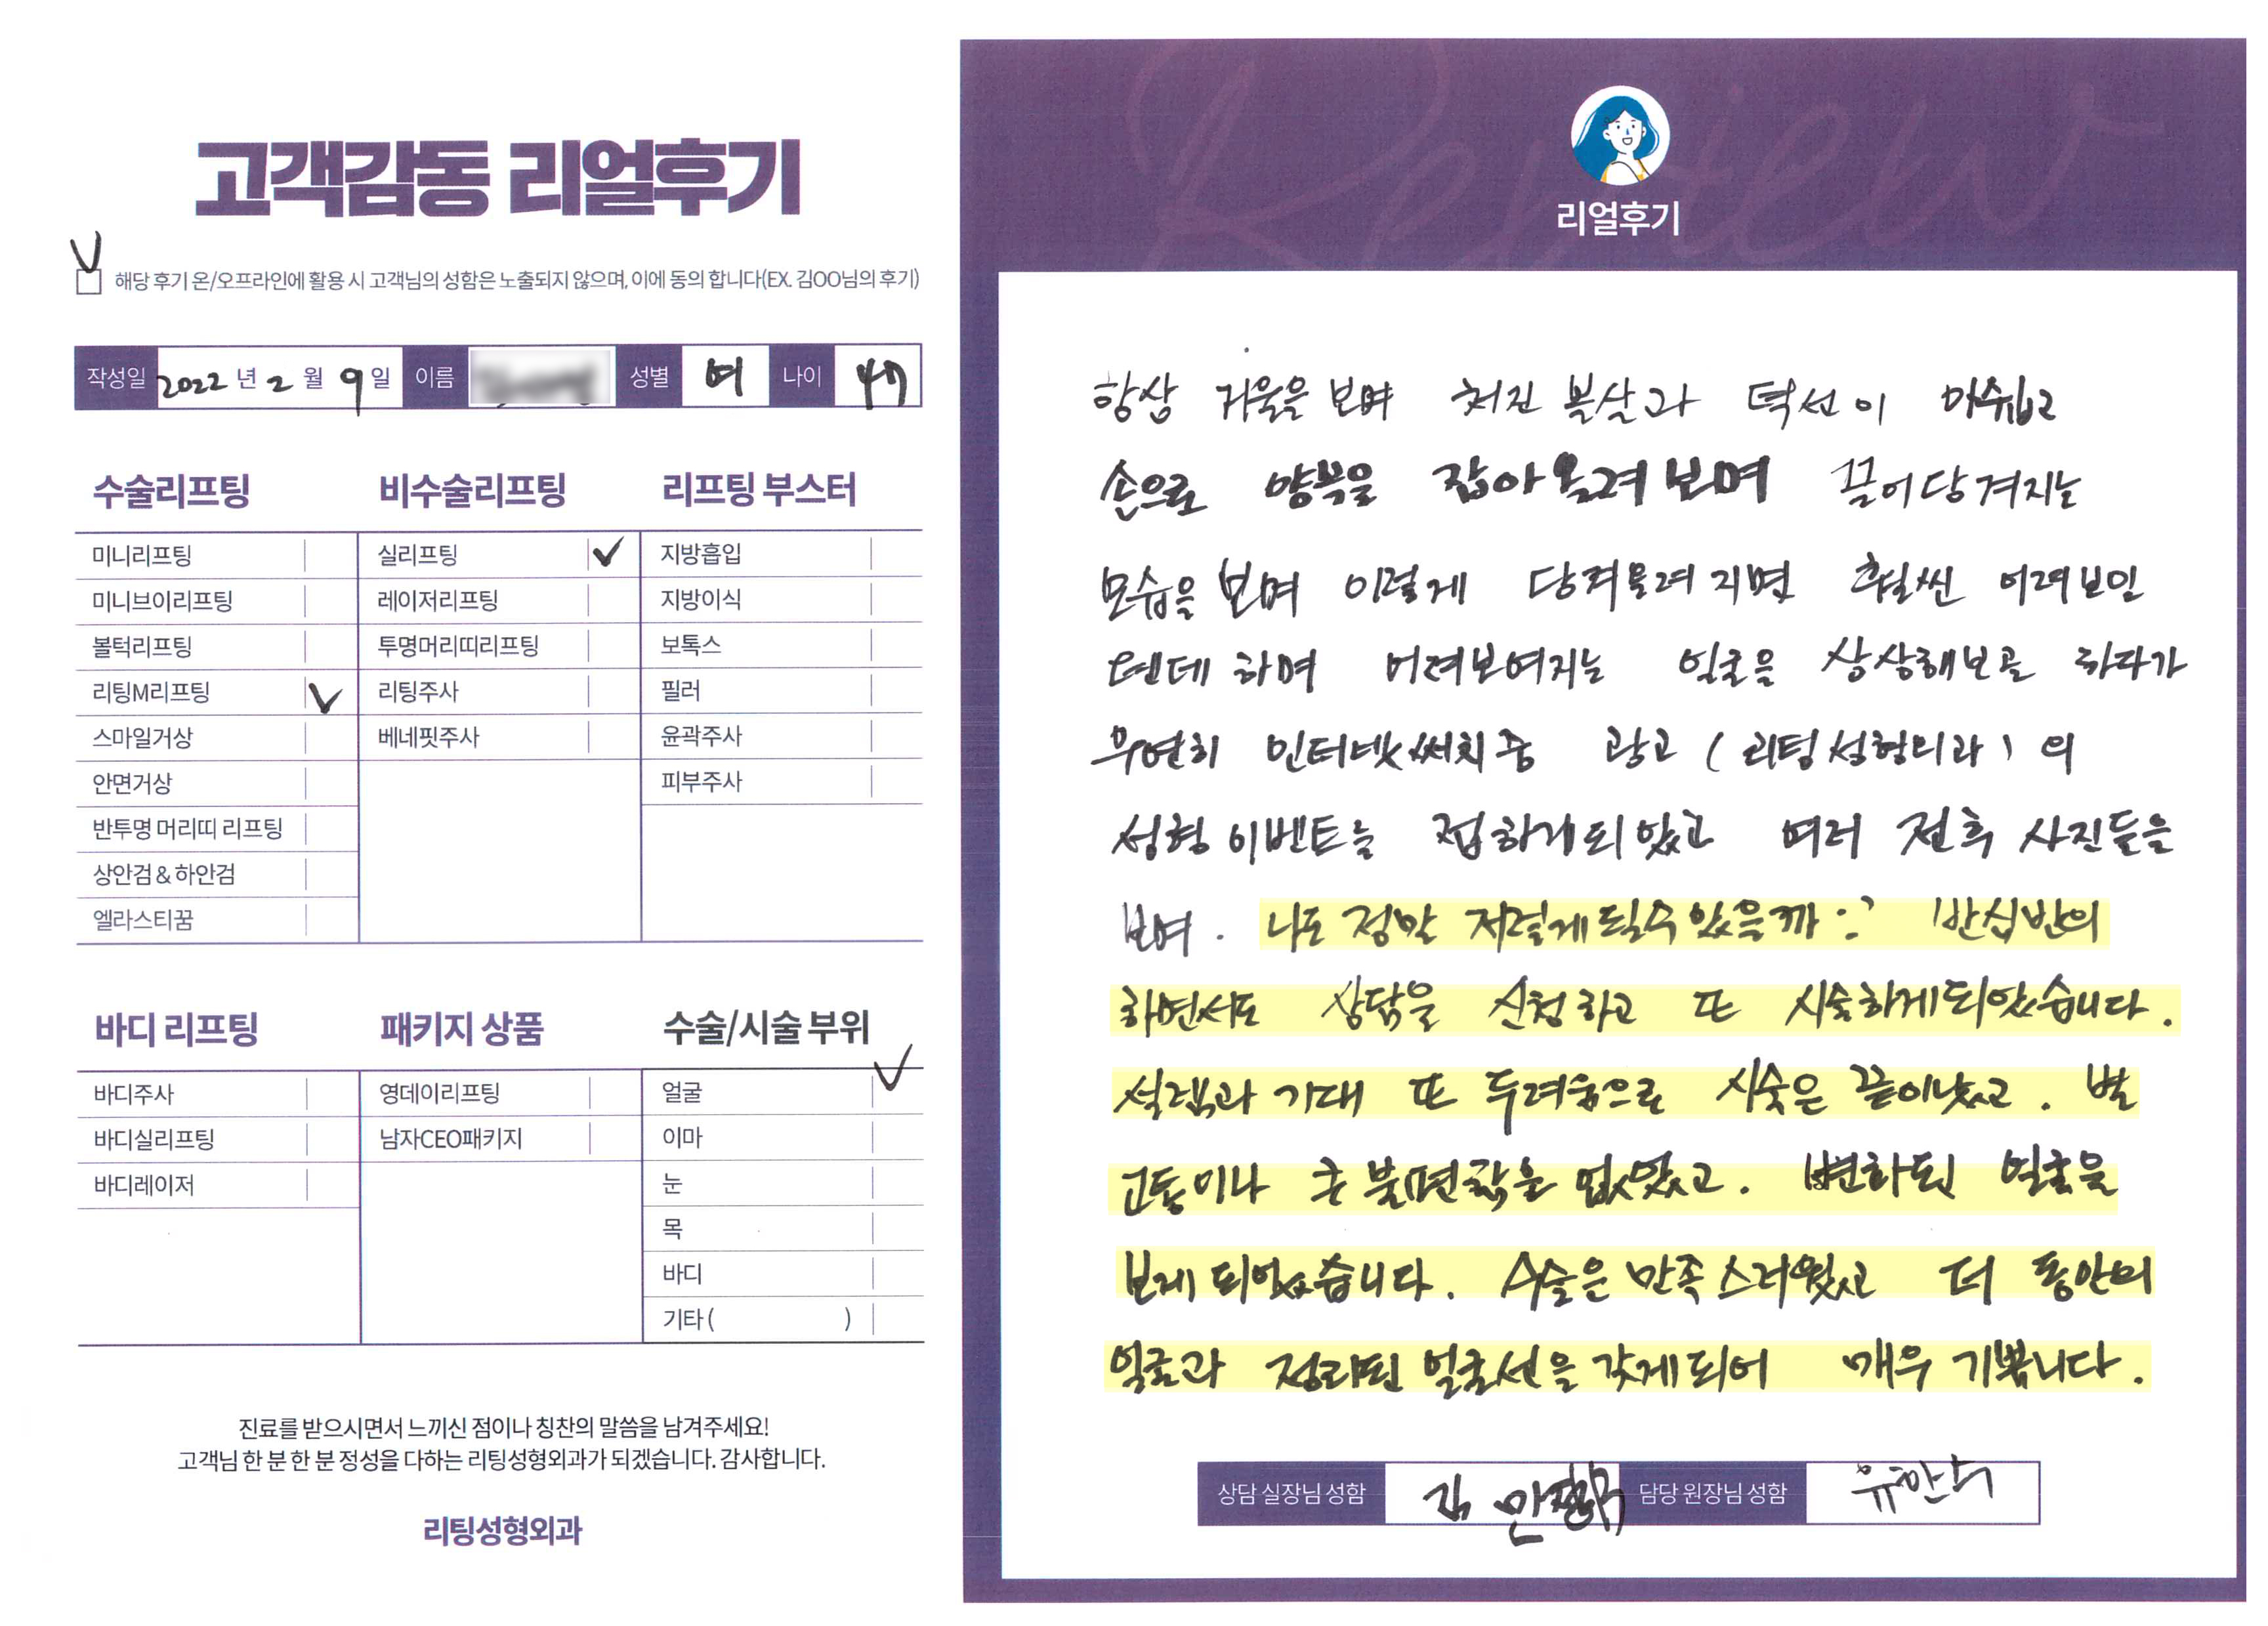 고객감동 리얼후기
V
해당 후기 온/오프라인에 활용 시 고객님의 성함은 노출되지 않으며, 이에 동의 합니다(EX. 김OO님의 후기)
작성일 2022 년 2 월 9 일 이름 성별 여 나이 47
수술리프팅 비수술리프팅 리프팅 부스터
미니리프팅 실리프팅 ✓ 지방흡입
미니브이리프팅 레이저리프팅 지방이식
볼턱리프팅 투명머리띠리프팅 보톡스
리팅M리프팅 ✓ 리팅주사 필러
스마일거상 베네핏주사 윤곽주사
안면거상 피부주사
반투명 머리띠 리프팅
상안검 & 하안검
엘라스티꿈
바디 리프팅 패키지 상품 수술/시술 부위
바디주사 영데이리프팅 얼굴 ✓
바디실리프팅 남자CEO패키지 이마
바디레이저 눈
목
바디
기타 ( )
진료를 받으시면서 느끼신 점이나 칭찬의 말씀을 남겨주세요!
고객님 한 분 한 분 정성을 다하는 리팅성형외과가 되겠습니다. 감사합니다.
리팅성형외과
Review
리얼후기
항상 거울을 보며 처진 볼살과 턱선이 아쉽고
손으로 양볼을 잡아 올려 보며 끌어당겨지는
모습을 보며 이렇게 당겨올려지면 훨씬 어려보일
텐데 하며 어려보여지는 얼굴을 상상해보곤 하다가
우연히 인터넷써치중 광고 (리팅성형외과) 의
성형 이벤트를 접하게되었고 여러 전후 사진들을
보며. 나도 정말 저렇게 될수 있을까? 반신반의
하면서도 상담을 신청하고 또 시술하게되었습니다.
설렘과 기대 또 두려움으로 시술은 끝이났고. 별
고통이나 큰 불편함은 없었고. 변화된 얼굴을
보게 되었습니다. 수술은 만족스러웠고 더 동안의
얼굴과 정리된 얼굴선을 갖게되어 매우 기쁩니다.
상담 실장님 성함 담당 원장님 성함 유한